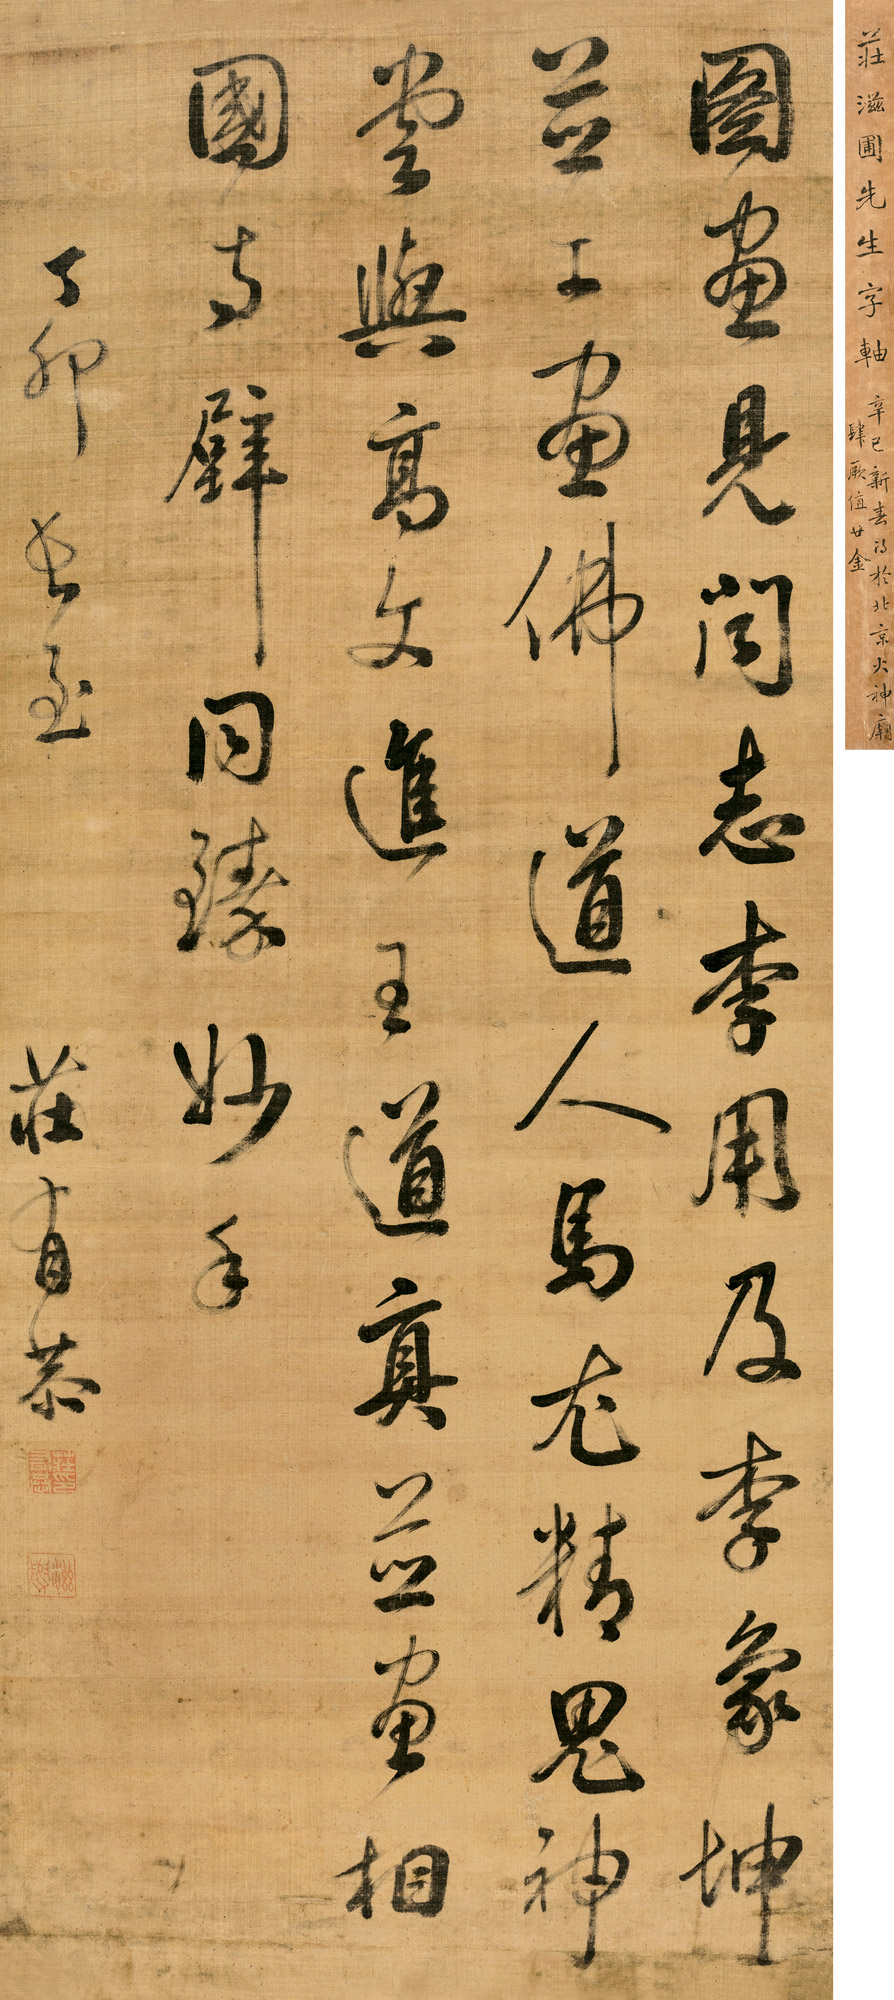 圖畫見聞志李用及李象坤
並工畫佛道人馬尤精鬼神
嘗與高文進王道真並畫相
國寺壁同臻妙手
丁卯長至
莊有恭
莊滋圃先生字軸
辛巳新春得於北京火神廟
肆厥值廿金